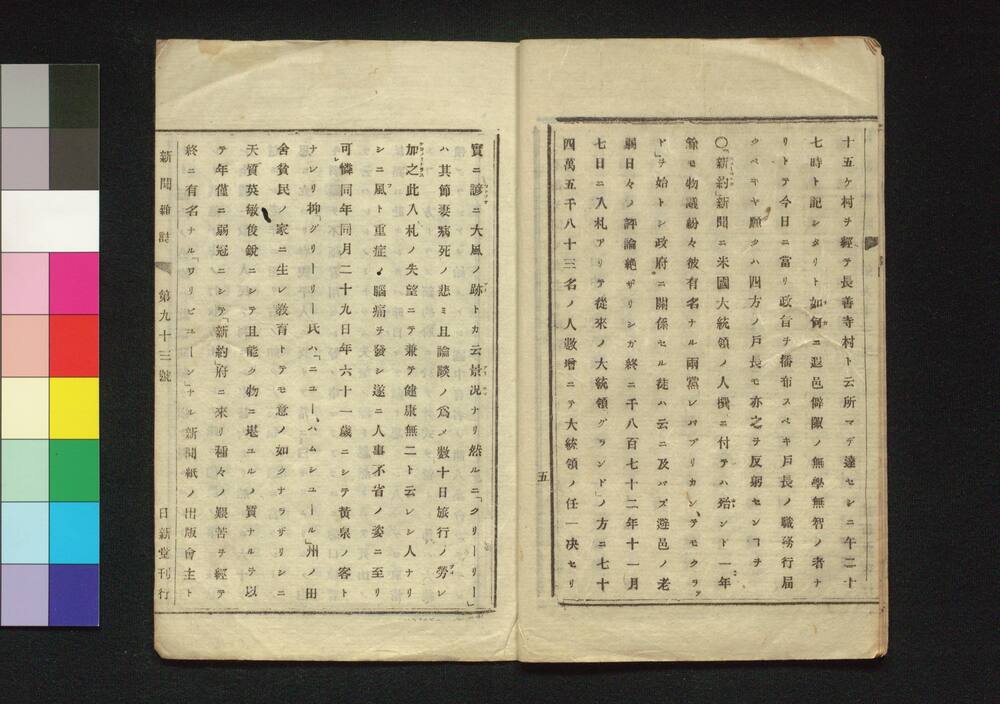 十五ケ村ヲ經テ長善寺村ト云所マデ達セシニ午二十
七時ト記シタリト如何ニ遐邑僻陬ノ無學無智ノ者ナ
リトテ今日ニ當リ政旨ヲ播布スベキ戸長ノ職務行屆
ウベキヤ願クハ四方ノ戸長モ亦之ヲ反躬センコヲ
〇「新約」新聞ニ米國大統領ノ人撰ニ付テハ殆ンド一年
餘モ物議紛々彼有名ナル兩黨レパブリカンデモクラア
ド」ヲ始トシ政府ニ關係セル徒ハ云ニ及バズ遐邑ノ老
弱日々ノ評論絶ザリシガ終ニ千八百七十二年十一月
七日ニ入札アリテ從來ノ大統領「グランド」ノ方ニ七十
四萬五千八十三名ノ人數增ニテ大統領ノ任一决セリ
五
實ニ諺ニ大風ノ跡トカ云景况ナリ然ルニ「クリーリー」
ハ其節妻病死ノ悲ミ且論談ノ爲メ數十日旅行ノ勞レ
加之此入札ノ失望ニ兼テ健康無二ト云レシ人ナリ
シニ風ト重症ノ腦痛ヲ發シ遂ニ人事不省ノ姿ニ至リ
可憐同年同月二十九日年六十一歲ニシテ黃泉ノ客ト
ナレリ抑「グリーリー」氏ハ「ニユーハムシユール」州ノ田
舍貧民ノ家ニ生レ敎育トテモ意ノ如クナラザリシニ
天質英敏俊銳ニシテ且能ク物ニ堪ユルノ質ナルヲ以
テ年僅ニ弱冠ニシテ「新約」府ニ來リ種々ノ艱苦ヲ經テ
終ニ有名ナル「ワリビユーン」ナル新聞紙ノ出版會主ト
新聞雜誌 第九十三號 日新堂刊行